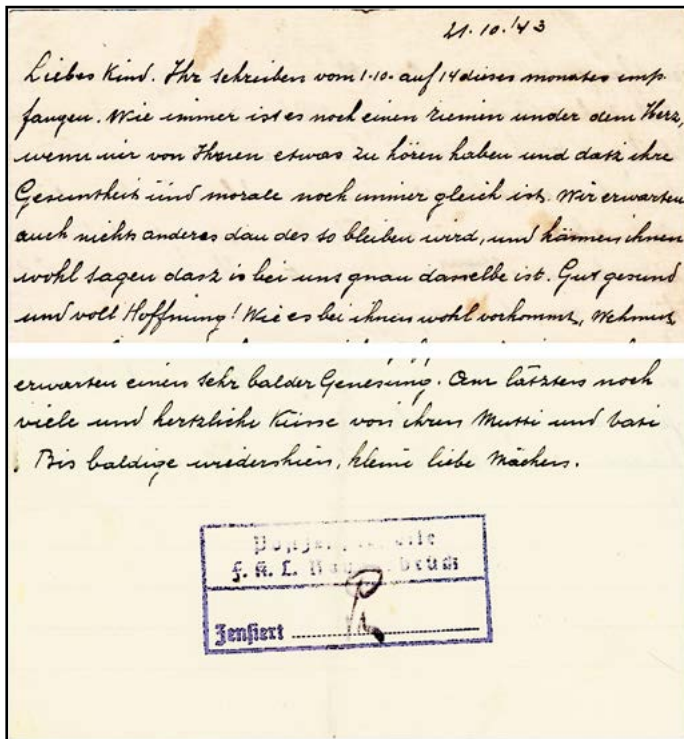 21.10.'43
Liebes Kind. Ihr schreiben vom 1.10. auf 14 dieses monates emp.
fangen. Wie immer ist es noch einen riemen under dem Herz,
wenn wir von Ihnen etwas zu hören haben und dasz ihre
Gesuntheit und morale noch immer gleich ist. Wir erwarten
auch nichts anderes dan des so bleiben wird, und können ihnen
wohl sagen dasz is bei uns gnau dasselbe ist. Gut gesund
und voll Hoffnung! Wie es bei ihnen wohl vorkommt, Wehmut
erwarten einen sehr balder Genesung. Am lätzten noch
viele und hertzliche Küsse von ihren Mutti und vati
Bis baldige wiedershien, kleine liebe Mächen.
F.K.L.
Zensiert